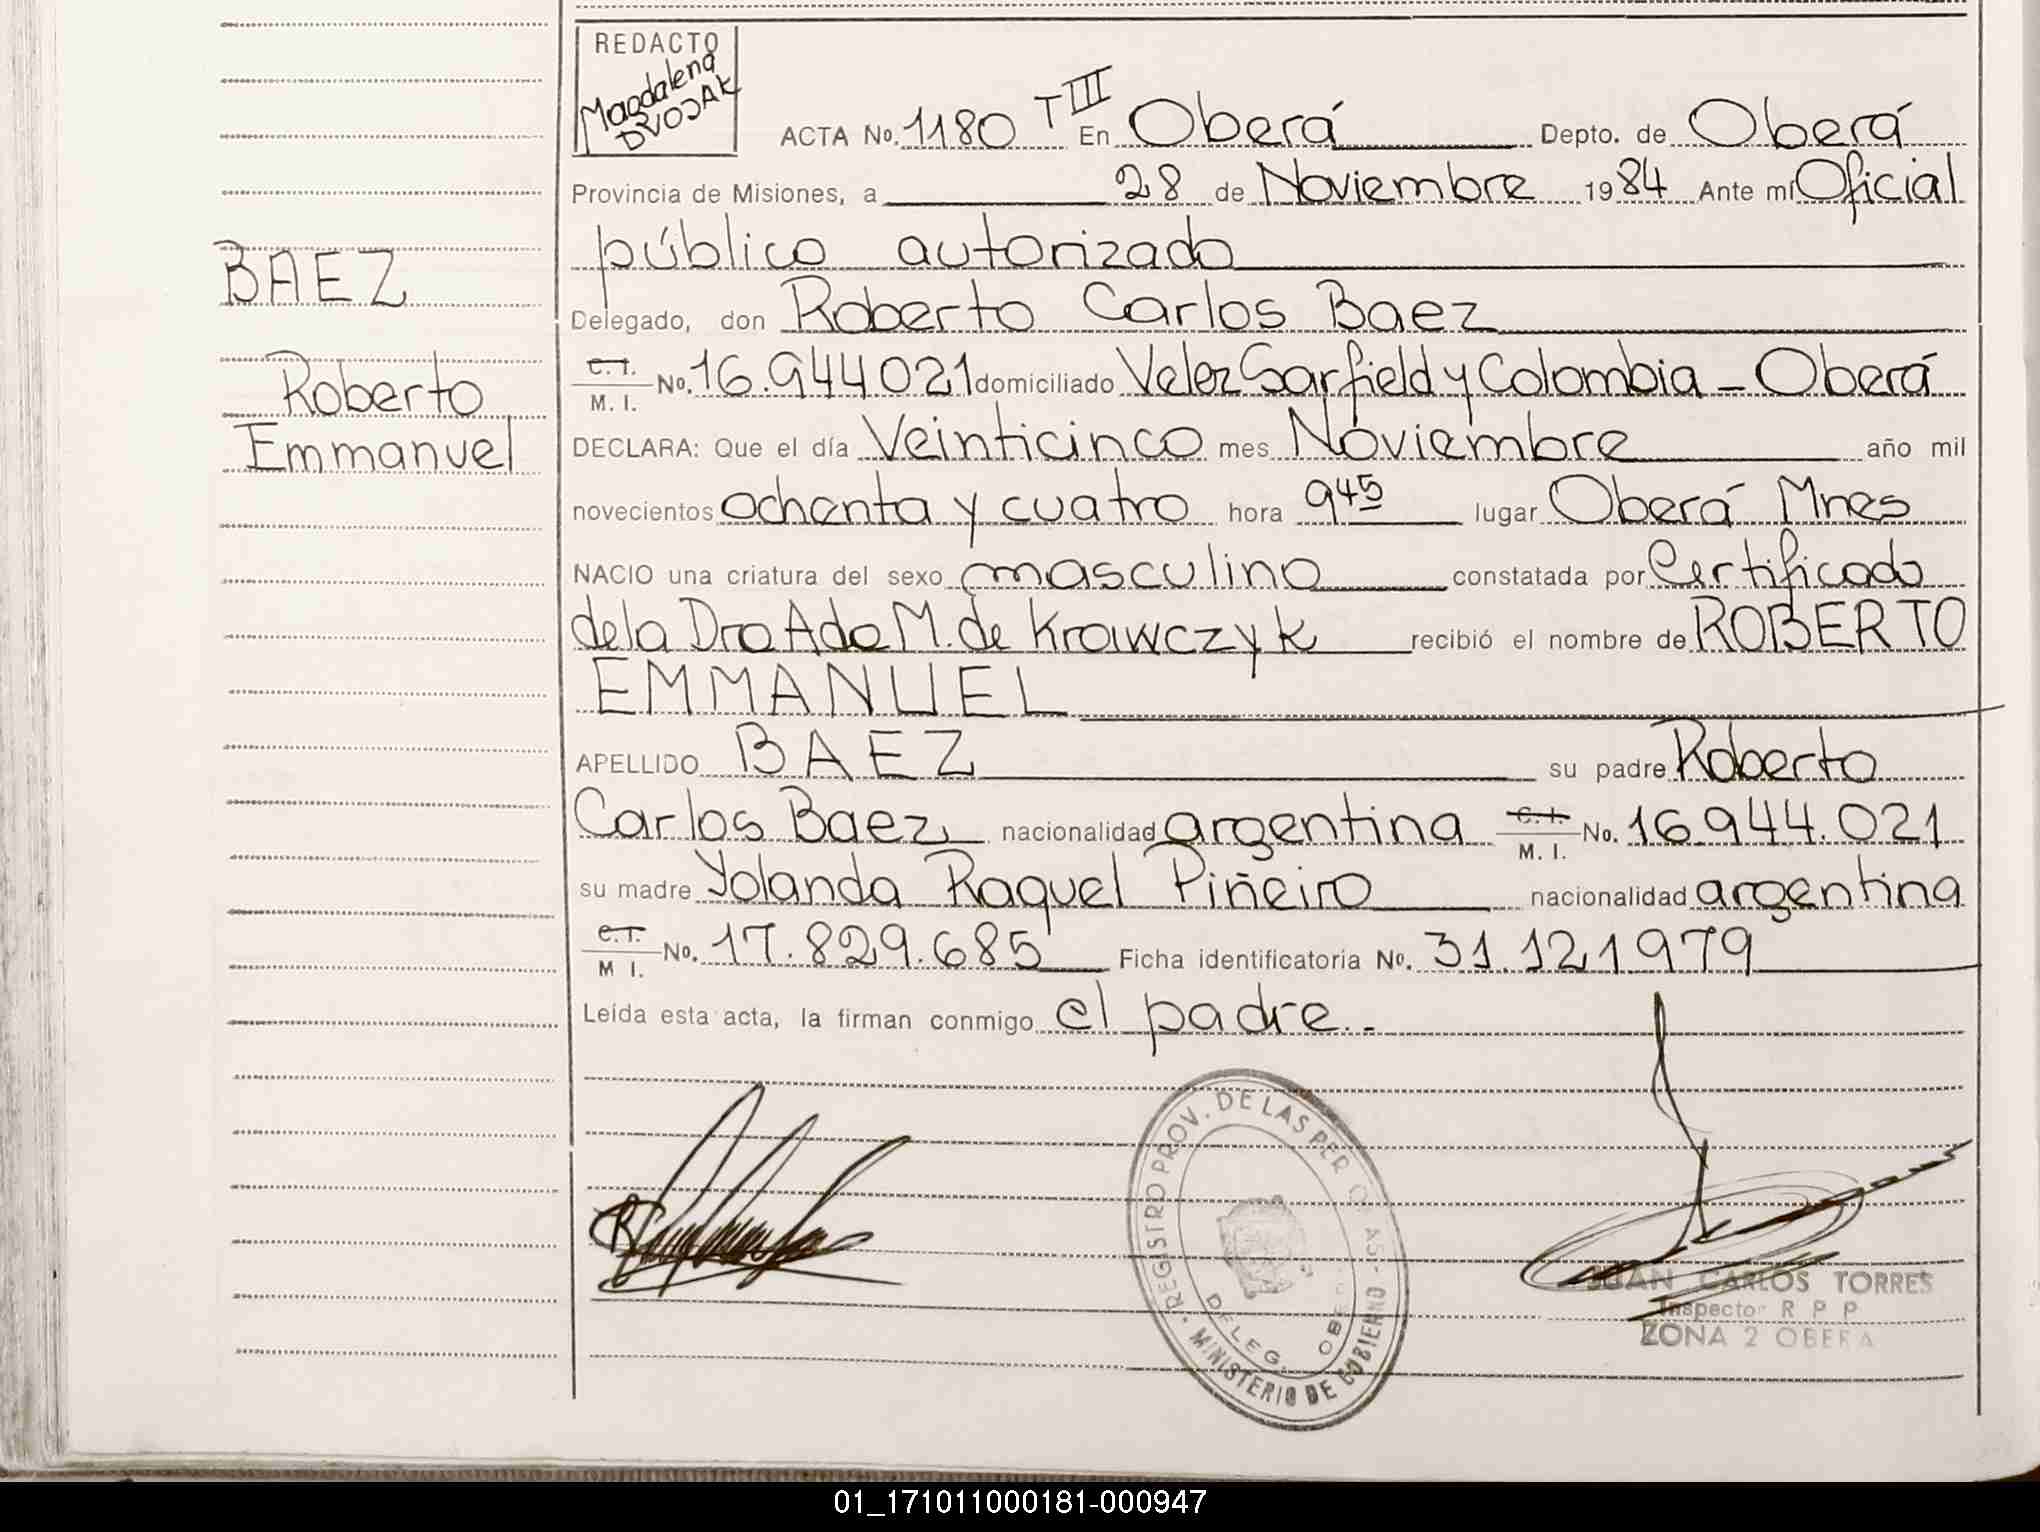 REDACTO
Magdalena
DVOJAK
ACTA No. 1180 T III En Oberá Depto. de Oberá
Provincia de Misiones, a 28 de Noviembre 1984 Ante mí Oficial
público autorizado
BAEZ
Delegado, don Roberto Carlos Baez
Roberto
C.I. M. I. No. 16.944021 domiciliado Velez Sarfield y Colombia - Oberá
Emmanuel
DECLARA: Que el día Veinticinco mes Noviembre año mil
novecientos ochenta y cuatro hora 9 45 lugar Oberá Mnes
NACIO una criatura del sexo masculino constatada por Certificado
de la Dra Ada M. de Krawczyk recibió el nombre de ROBERTO
EMMANUEL
APELLIDO BAEZ su padre Roberto
Carlos Baez nacionalidad argentina C.I. M. I. No. 16.944.021
su madre Yolanda Raquel Piñeiro nacionalidad argentina
C.I. M I. No. 17.829.685 Ficha identificatoria No. 31.121979
Leída esta acta, la firman conmigo el padre.-
REGISTRO PROV. DE LAS PER O AS
MINISTERIO DE GOBIERNO
DELEG. OBE
JUAN CARLOS TORRES
Inspector R P P
ZONA 2 OBERA
01_171011000181-000947